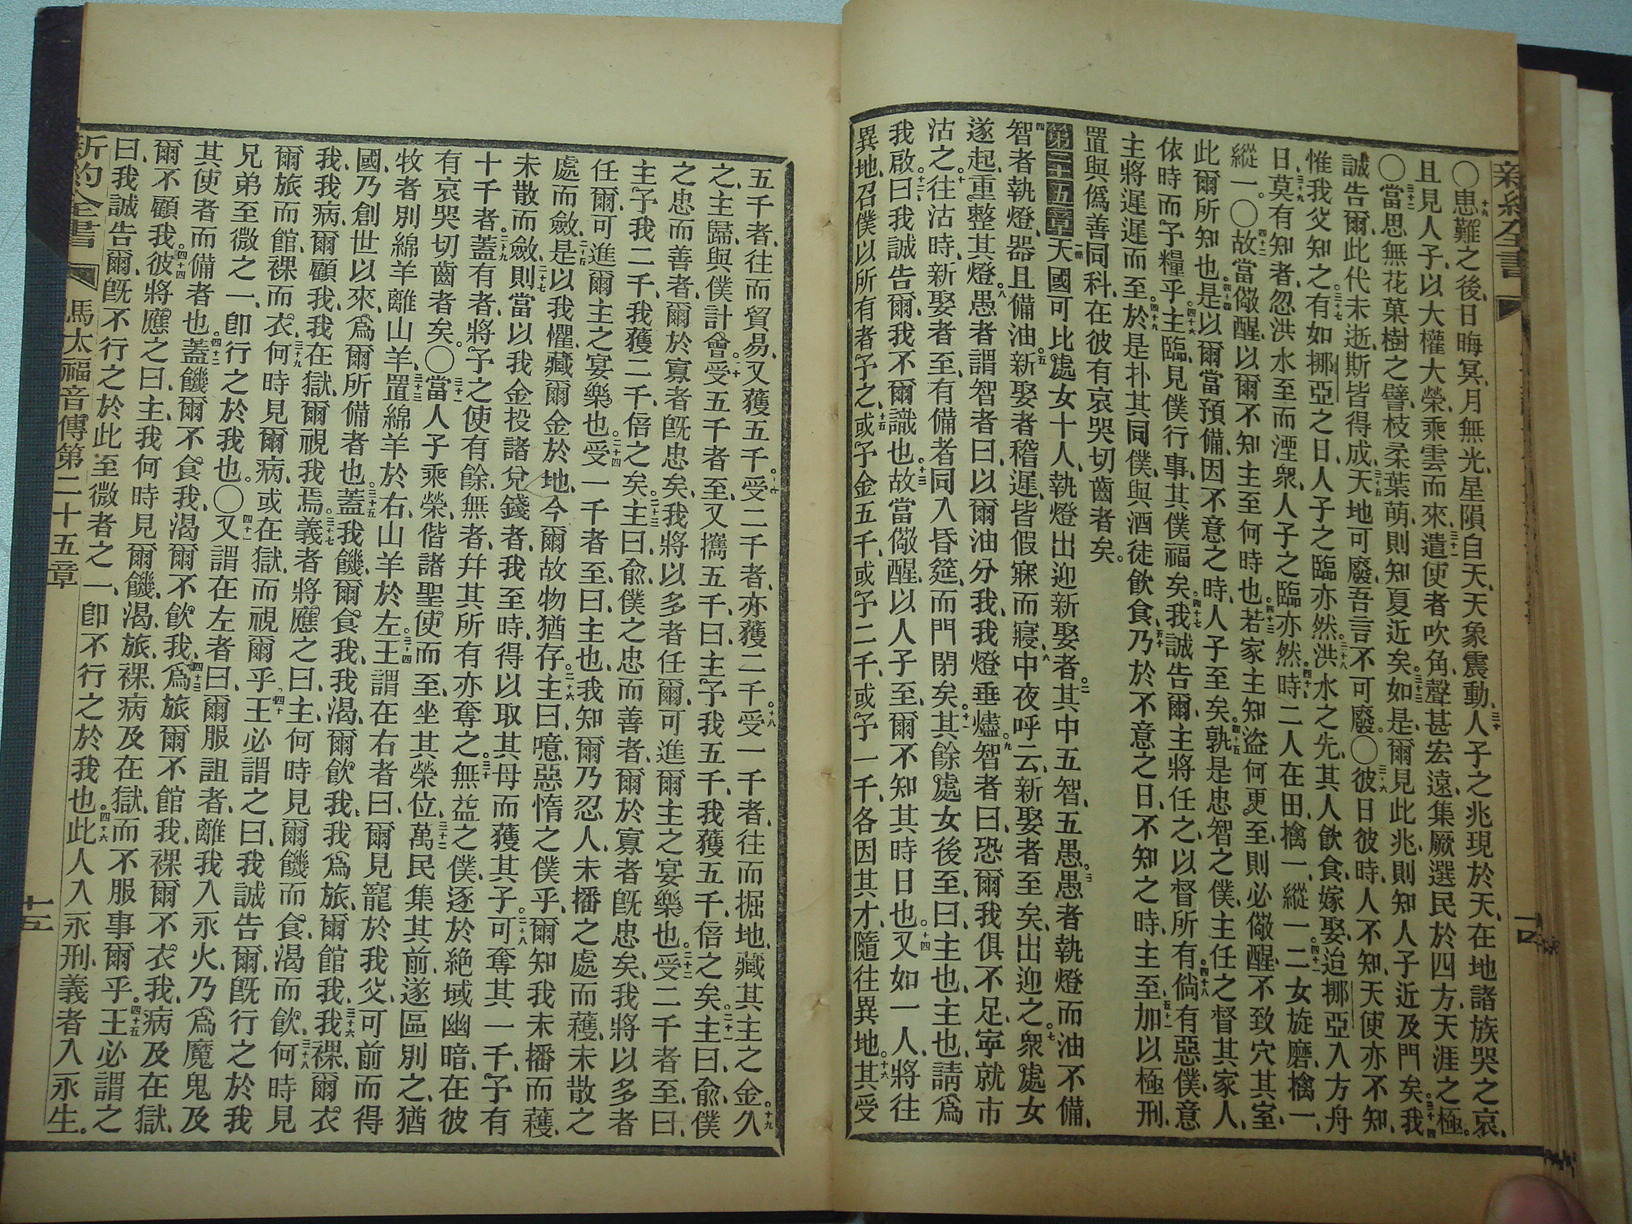 新約全書
○患難之後、日晦冥、月無光、星隕自天、天象震動、人子之兆現於天、在地諸族哭之哀、
且見人子、以大權大榮乘雲而來、遣使者吹角、聲甚宏遠、集厥選民於四方、天涯之極。
○當思無花菓樹之譬、枝柔葉萌、則知夏近矣、如是、爾見此兆、則知人子近及門矣、我
誠告爾、此代未逝、斯皆得成、天地可廢、吾言不可廢。○彼日彼時、人不知、天使亦不知、
惟我父知之、有如挪亞之日、人子之臨亦然、洪水之先、其人飲食嫁娶、迨挪亞入方舟
日、莫有知者、忽洪水至而湮衆、人子之臨亦然、時二人在田、擒一、縱一、二女旋磨、擒一、
縱一。○故當儆醒、以爾不知主至何時也、若家主知盜何更至、則必儆醒、不致穴其室、
此爾所知也、是以爾當預備、因不意之時、人子至矣、孰是忠智之僕、主任之督其家人、
依時而予糧乎、主臨、見僕行事、其僕福矣、我誠告爾、主將任之、以督所有、倘有惡僕意
主將遲遲而至、於是扑其同僕、與酒徒飲食、乃於不意之日、不知之時、主至、加以極刑、
置與僞善同科、在彼有哀哭切齒者矣。
第二十五章天國可比處女十人、執燈出迎新娶者、其中五智、五愚、愚者執燈而油不備、
智者執燈、器且備油、新娶者稽遲、皆假寐而寢、中夜呼云、新娶者至矣、出迎之、衆處女
遂起、重整其燈、愚者謂智者曰、以爾油分我、我燈垂燼、智者曰、恐爾我俱不足、寧就市
沽之、往沽時、新娶者至、有備者同入昏筵、而門閉矣、其餘處女後至、曰、主也主也、請爲
我啟、曰、我誠告爾、我不爾識也、故當儆醒、以人子至、爾不知其時日也、又如一人、將往
異地、召僕以所有者予之、或予金五千、或予二千、或予一千、各因其才、隨往異地、其受
五千者、往而貿易、又獲五千、受二千者、亦獲二千、受一千者、往而掘地、藏其主之金、久
之、主歸與僕計會、受五千者至、又攜五千、曰、主予我五千、我獲五千、倍之矣、主曰、俞、僕
之忠而善者、爾於寡者旣忠矣、我將以多者任爾、可進爾主之宴樂也、受二千者至、曰、
主予我二千、我獲二千、倍之矣、主曰、俞、僕之忠而善者、爾於寡者旣忠矣、我將以多者
任爾、可進爾主之宴樂也、受一千者至、曰、主也、我知爾乃忍人、未播之處而穫、未散之
處而斂、是以我懼、藏爾金於地、今爾故物猶存、主曰、噫、惡惰之僕乎、爾知我未播而穫、
未散而斂、則當以我金投諸兌錢者、我至時、得以取其母而獲其子、可奪其一千、予有
十千者、蓋有者、將予之使有餘、無者、幷其所有亦奪之、無益之僕、逐於絶域幽暗、在彼
有哀哭切齒者矣。○當人子乘榮、偕諸聖使而至、坐其榮位、萬民集其前、遂區別之、猶
牧者別綿羊離山羊、置綿羊於右、山羊於左、王謂在右者曰、爾見寵於我父、可前而得
國、乃創世以來、爲爾所備者也、蓋我饑、爾食我、我渴、爾飲我、我爲旅、爾館我、我裸、爾衣
我、我病、爾顧我、我在獄、爾視我焉、義者將應之曰、主、何時見爾饑而食、渴而飲、何時見
爾旅而館、裸而衣、何時見爾病、或在獄而視爾乎、王必謂之曰、我誠告爾、旣行之於我
兄弟至微之一、卽行之於我也。○又謂在左者曰、爾服詛者、離我入永火、乃爲魔鬼及
其使者而備者也、蓋饑、爾不食我、渴、爾不飲我、爲旅、爾不館我、裸、爾不衣我、病及在獄、
爾不顧我、彼將應之曰、主、我何時見爾饑、渴、旅、裸、病、及在獄、而不服事爾乎、王必謂之
曰、我誠告爾、旣不行之於此至微者之一、卽不行之於我也、此人入永刑、義者入永生。
新約全書 馬太福音傳第二十五章 十五